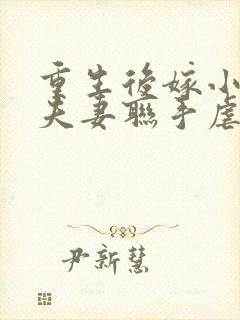 重生後嫁小
夫妻聯手虐
尹新慧